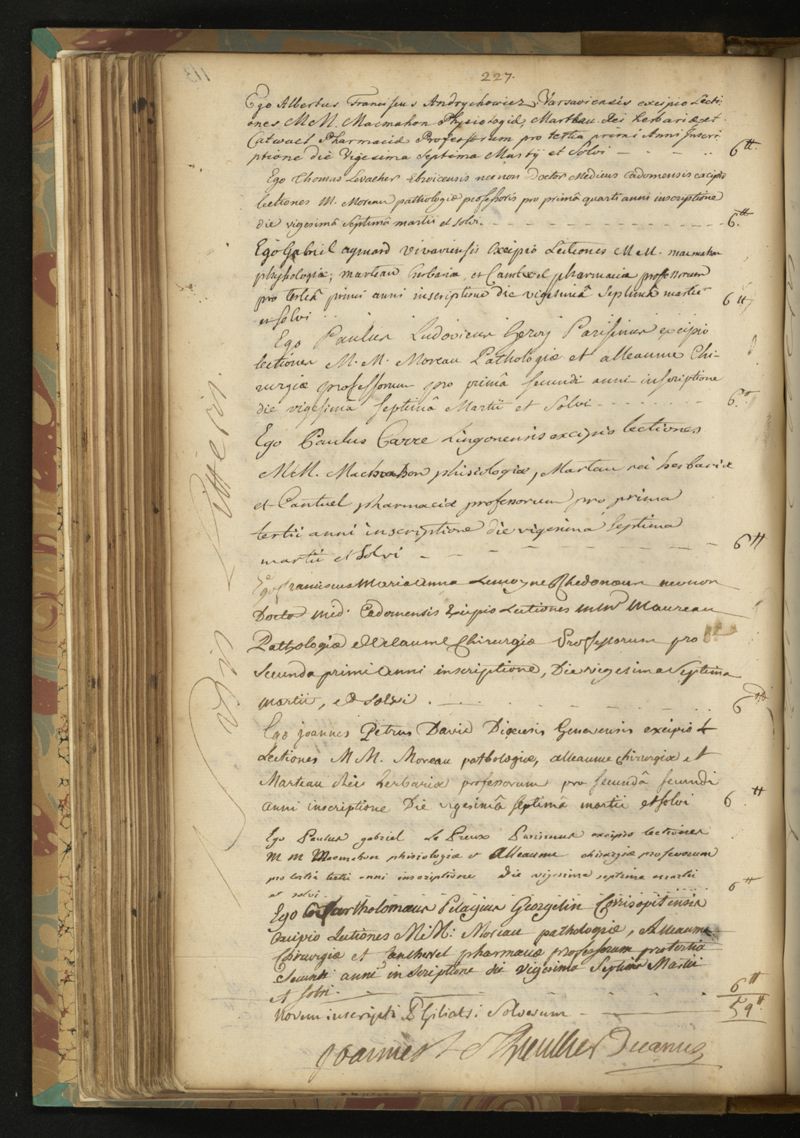 227.
Ego Albertus Franciscus Andrychowicz Varsaviensis excipio Lecti-
ones M.M. Macmahon Physiologiæ, Marteau Rei herbariæ et
Pharmaciæ Professorum pro tertia primi Anni Inscri-
ptione die Vigesima Septima Martij et Solvi 6 ₶
Ego Thomas Levacher Ebroicensis necnon Doctor Medicus Cadomensis excipio
lectiones M. Moreau pathologiæ professoris pro primâ quarti anni inscriptione
die vigesimâ septimâ martii et solvi. 6 ₶
Ego Gabriel aymard vivariensis Excipio Lectiones M.M. macmahon
physiologiæ, marteau herbaria, et pharmacia professorum
pro tertiâ primi anni inscriptione die vigesimâ Septimâ martii
et solvi 6 ₶
Ego Paulus Ludovicus Parisinus excipio
lectiones M. M. Moreau Pathologiæ et alleaume Chi-
rurgiæ professorum pro primâ secundi anni inscriptione
die vigesimâ septimâ Martii et Solvi 6 ₶
Ego Paulus Carre Lingonensis excipio lectiones
M.M. Macmahon phisiologiæ, Marteau rei herbariæ
et Cantuel pharmaciæ professorum pro prima
tertii anni inscriptione die vigesima septima
martii et solvi 6 ₶
Ego franciscus Maria anna Lemoyne Rhedonæus necnon
Doctor Med. Cadomensis Excipio Lectiones Maureau
Pathologiæ et alleaume Chirurgiæ Professorum pro
secunda primi Anni inscriptione, Die vigesima Septima
martii, et solvi 6 ₶
Ego joannes Petrus David Diœcesis Genevensis excipio
Lectiones M M. Moreau pathologiæ, alleaume chirurgiæ et
Marteau Rei herbariæ professorum pro secundâ secundi
anni inscriptione Die vigesimâ septimâ martii et solvi 6 ₶
Ego Paulus gabriel Le Preux Parisinus excipio lectiones
m m Macmahon phisiologiæ et Alleaume chirurgiæ professorum
pro tertia tertii anni inscriptione die vigesima septima martii
et solvi 6 ₶
Ego Bartholomæus Pelagius Georgelin Corisopitensis
Excipio Lectiones M.M. Moreau pathologiæ, Alleaume
Chirurgiæ et pharmaciæ professorum pro tertia
Secundi anni inscriptione die vigesima Septima Martii
et solvi. 6 ₶
Novem inscripti Solverunt 54 ₶
Joannes Decanus